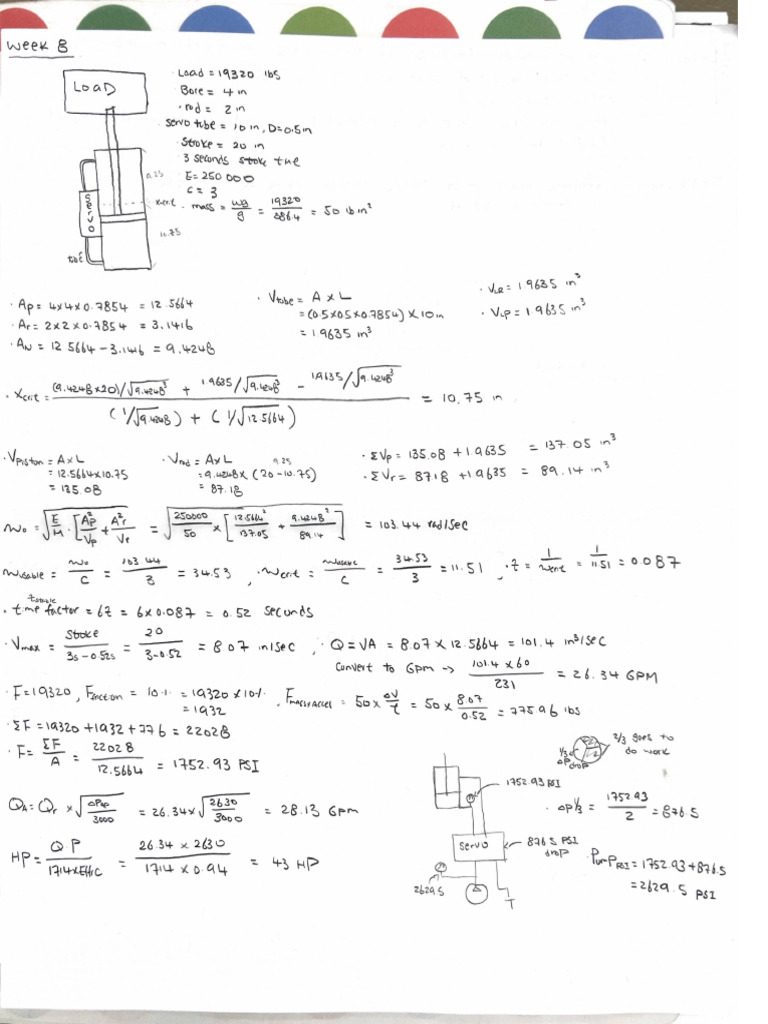 Week 8
LOAD
· Load = 19320 lbs
Bore = 4 in
· rod = 2 in
servo tube = 10 in, D=0.5in
Stroke = 20 in
3 seconds stroke tme
E = 250 000
C = 3
· mass = wg/g = 19320/386.4 = 50 lb in²
9.25
xcrit
SERVO
10.75
tube
· Ap = 4x4x0.7854 = 12.5664
· Ar = 2x2x0.7854 = 3.1416
· AN = 12.5664 - 3.1416 = 9.4248
· Vtube = A x L
= (0.5x0.5x0.7854) x 10in
= 1.9635 in³
· VLR = 1.9635 in³
· VLP = 1.9635 in³
· Xcrit = ((9.4248x20)/√9.4248³ + 1.9635/√9.4248³ - 1.9635/√9.4248³) / ((1/√9.4248) + (1/√12.5664)) = 10.75 in
· Vpiston = A x L
= 12.5664x10.75
= 135.08
· Vrod = A x L
9.25
= 9.4248x (20-10.75)
= 87.18
· ΣVp = 135.08 + 1.9635 = 137.05 in³
· ΣVr = 87.18 + 1.9635 = 89.14 in³
ωo = √(E/M · [A²p/Vp + A²r/Vr]) = √(250000/50 x [12.5664²/137.05 + 9.4248²/89.14]) = 103.44 rad/sec
ωusable = ωo/C = 103.44/3 = 34.53, · ωcrit = ωusable/C = 34.53/3 = 11.51, · t = 1/ωcrit = 1/11.51 = 0.087
· tme factor = 6t = 6x0.087 = 0.52 seconds
· Vmax = Stoke/3s-0.52s = 20/3-0.52 = 8.07 in/sec, · Q = VA = 8.07 x 12.5664 = 101.4 in³/sec
Convert to Gpm → 101.4 x 60/231 = 26.34 GPM
· F = 19320, Ffriction = 10% = 19320x10%
= 1932
, Fmass acces = 50x ΔV/t = 50 x 8.07/0.52 = 775.96 lbs
· ΣF = 19320 + 1932 + 776 = 22028
· F = ΣF/A = 22028/12.5664 = 1752.93 PSI
QA = Qr x √(ΔPap/3000) = 26.34x √(2630/3000) = 28.13 Gpm
HP = Q P/1714xEffic = 26.34 x 2630/1714 x 0.94 = 43 HP
1/3
ΔP drop
2/3 goes to
do work
1752.93 PSI
· ΔP 1/3 = 1752.93/2 = 876.5
servo
876.5 PSI
drop
2629.5
T
PumpPSI = 1752.93+876.5
= 2629.5 PSI